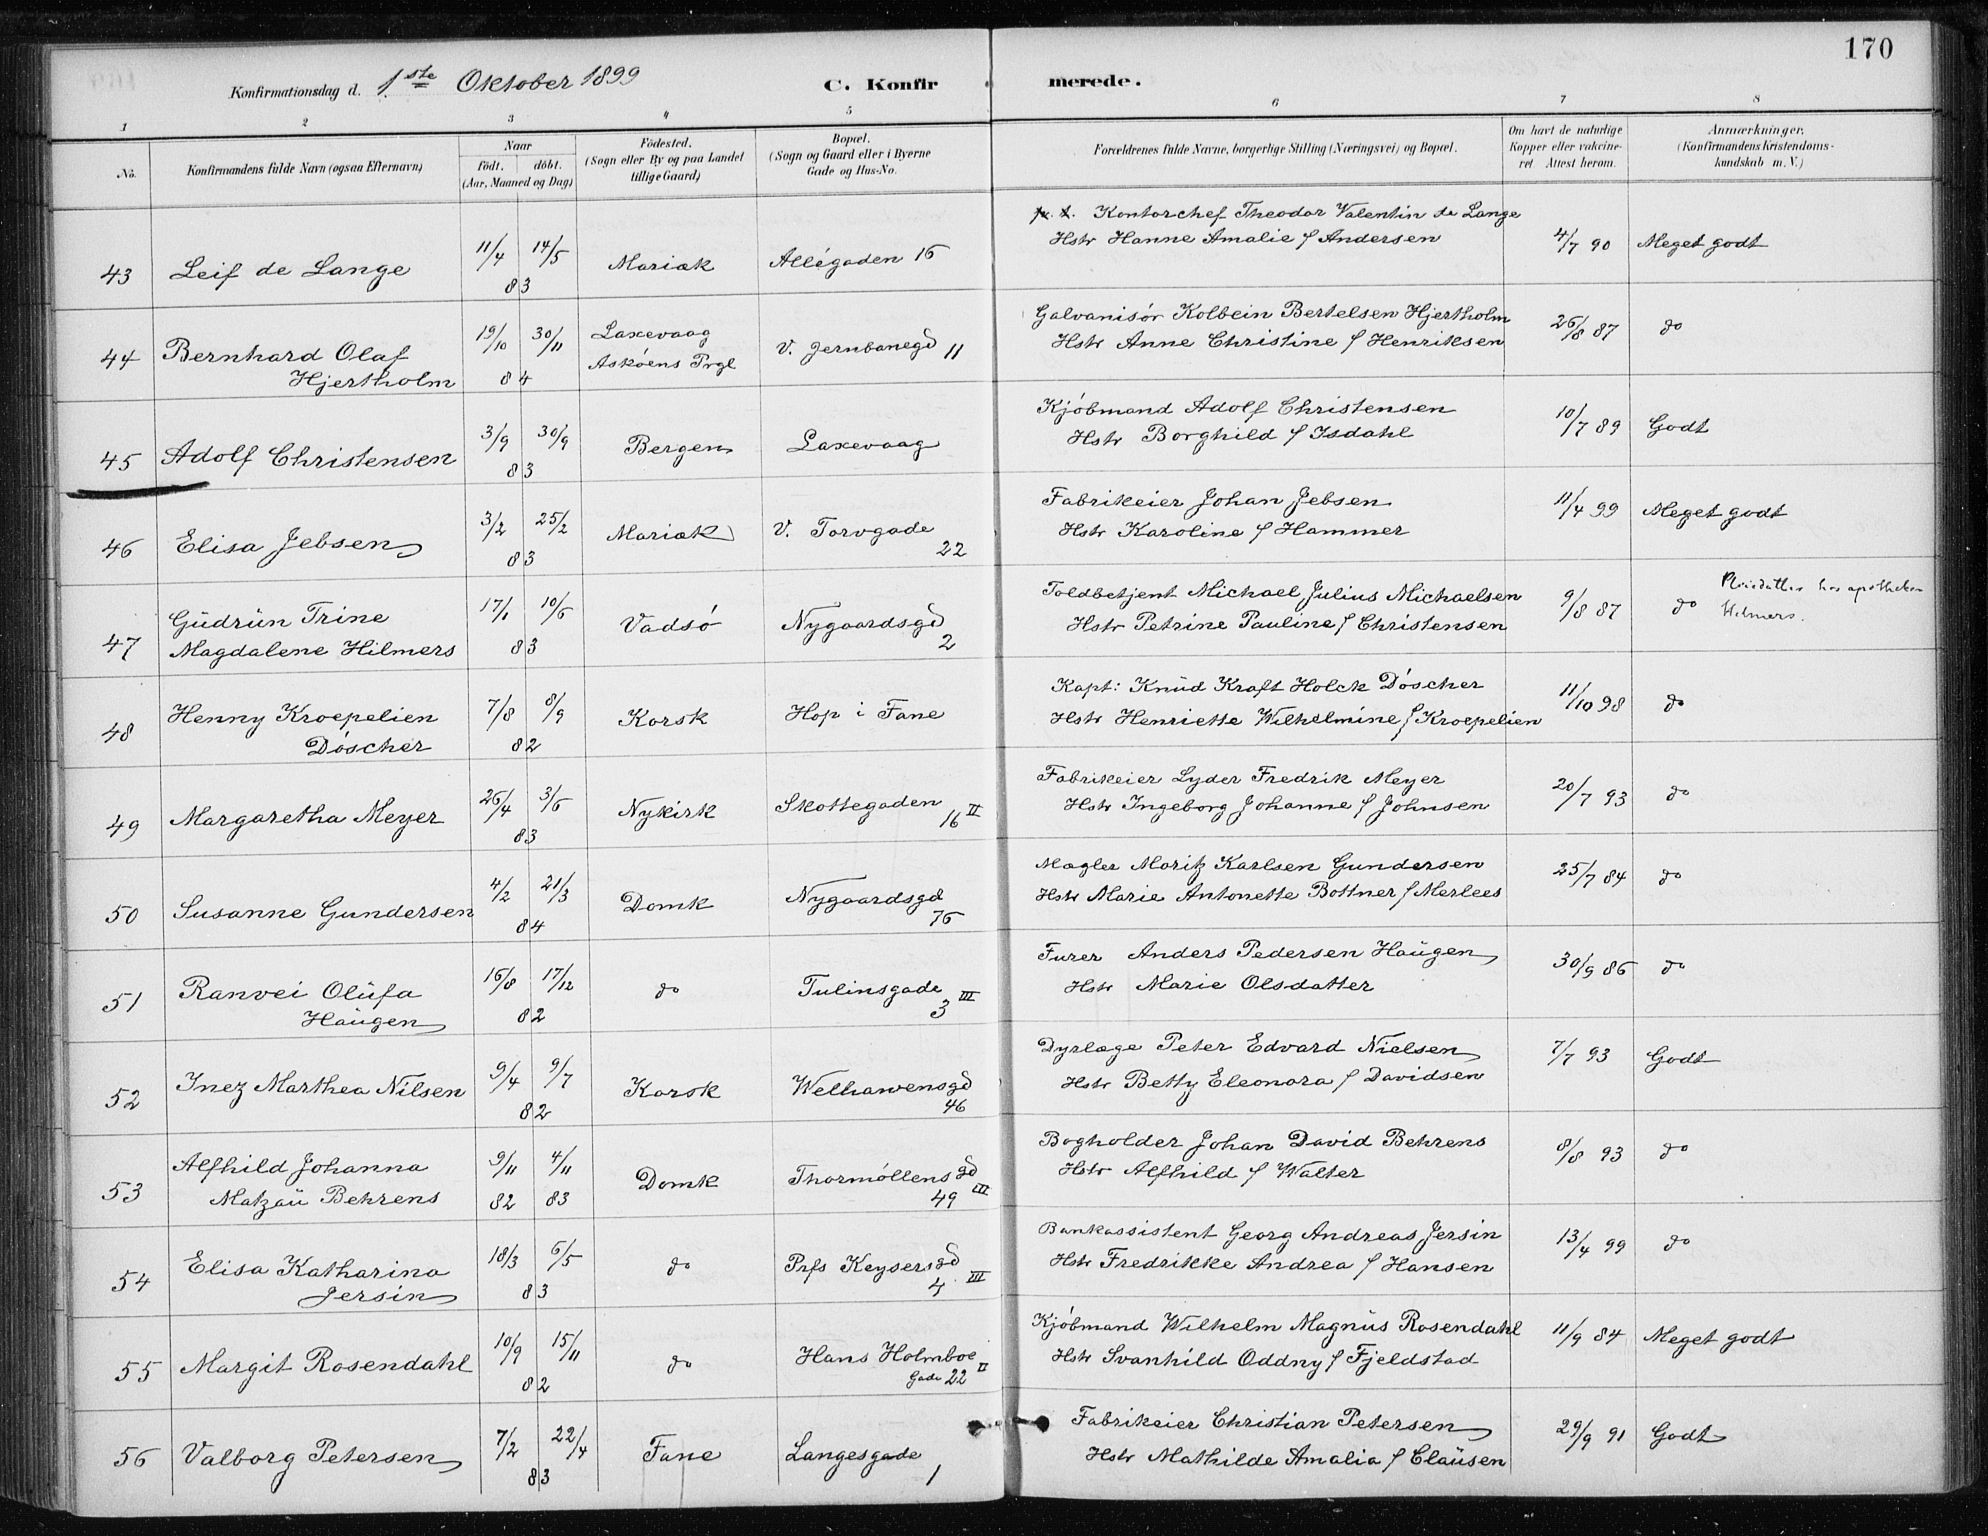 170
Konfirmationsdag d. 1.ste Oktober 1899 C. Konfir merede.
1 2 3 4 5 6 7 8
No. Konfirmandens fulde Navn (ogsaa Efternavn) Naar Födt. döbt. (Aar, Maaned og Dag) Födested. (Sogn eller By og paa Landet tillige Gaard) Bopæl. (Sogn og Gaard eller i Byerne Gade og Hus-No. Forældrenes fulde Navne, borgerlige Stilling (Næringsvei) og Bopæl. Om havt de naturlige Kopper eller vakcineret. Attest herom. Anmærkninger. (Konfirmandens Kristendomskundskab m. V.)
p. t. Kontorchef Theodor Valentin de Lange
43 Leif de Lange 11/4 14/5 83 Mariæk Allégaden 16 Hstr Hanne Amalie f Andersen 4/7 90 Meget godt
Galvanisör Kolbein Bertelsen Hjertholm
44 Bernhard Olaf 19/10 30/11 Laxevaag V. Jernbanegd 11 Hstr Anne Christine f Henriksen 26/8 87 do
Hjertholm 84 Asköens Prgl
Kjöbmand Adolf Christensen
45 Adolf Christensen 3/9 30/9 83 Bergen Laxevaag Hstr Borghild f Isdahl 10/7 89 Godt
Fabrikeier Johan Jebsen
46 Elisa Jebsen 3/2 25/2 83 Mariæk V. Torvgade 22 Hstr Karoline f Hammer 11/4 99 Meget godt
Toldbetjent Michael Julius Michaelsen
47 Güdrün Trine 17/1 10/6 Vadsö Nygaardsgd 2 Hstr Petrine Pauline f Christensen 9/8 87 do Pleiedatter hos apotheker
Magdalene Hilmers 83 Hilmers.
Kapt: Knüd Kraft Holck Döscher
48 Henny Kroepelien 7/8 8/9 Korsk Hop i Fane Hstr Henriette Wilhelmine f Kroepelien 11/10 98 do
Döscher 82
Fabrikeier Lyder Fredrik Meyer
49 Margaretha Meyer 26/4 3/6 83 Nykirk Skottegaden 16 II Hstr Ingeborg Johanne f Johnsen 20/7 93 do
Mægler Moritz Karlsen Gundersen
50 Susanne Gundersen 4/2 21/3 84 Domk Nygaardsgd 76 Hstr Marie Antonette Bottner f Merlees 25/7 84 do
Furer Anders Pedersen Haügen
51 Ranvei Olüfa 16/8 17/12 do Tulinsgade 3 III Hstr Marie Olsdatter 30/9 86 do
Haügen 82
Dyrlæge Peter Edvard Nielsen
52 Inez Marthea Nilsen 9/4 9/7 82 Korsk Welhavensgd 46 Hstr Betty Eleonora f Davidsen 7/7 93 Godt
Bogholder Johan David Behrens
53 Alfhild Johanna 9/11 4/11 Domk Thormöllensgd 49 III Hstr Alfhild f Walter 8/8 93 do
Matzaü Behrens 82 83
Bankassistent Georg Andreas Jersin
54 Elisa Katharina 18/3 6/5 do Prfs Keysersgd 4 III Hstr Fredrikke Andrea f Hansen 13/4 99 do
Jersin 83
Kjöbmand Wilhelm Magnüs Rosendahl
55 Margit Rosendahl 10/9 15/11 82 do Hans Holmboe Gade 22 II Hstr Svanhild Oddny f Fjeldstad 11/9 84 Meget godt
Fabrikeier Christian Petersen
56 Valborg Petersen 7/2 22/4 83 Fane Langesgade 1 Hstr Mathilde Amalia f Claüsen 29/9 91 Godt